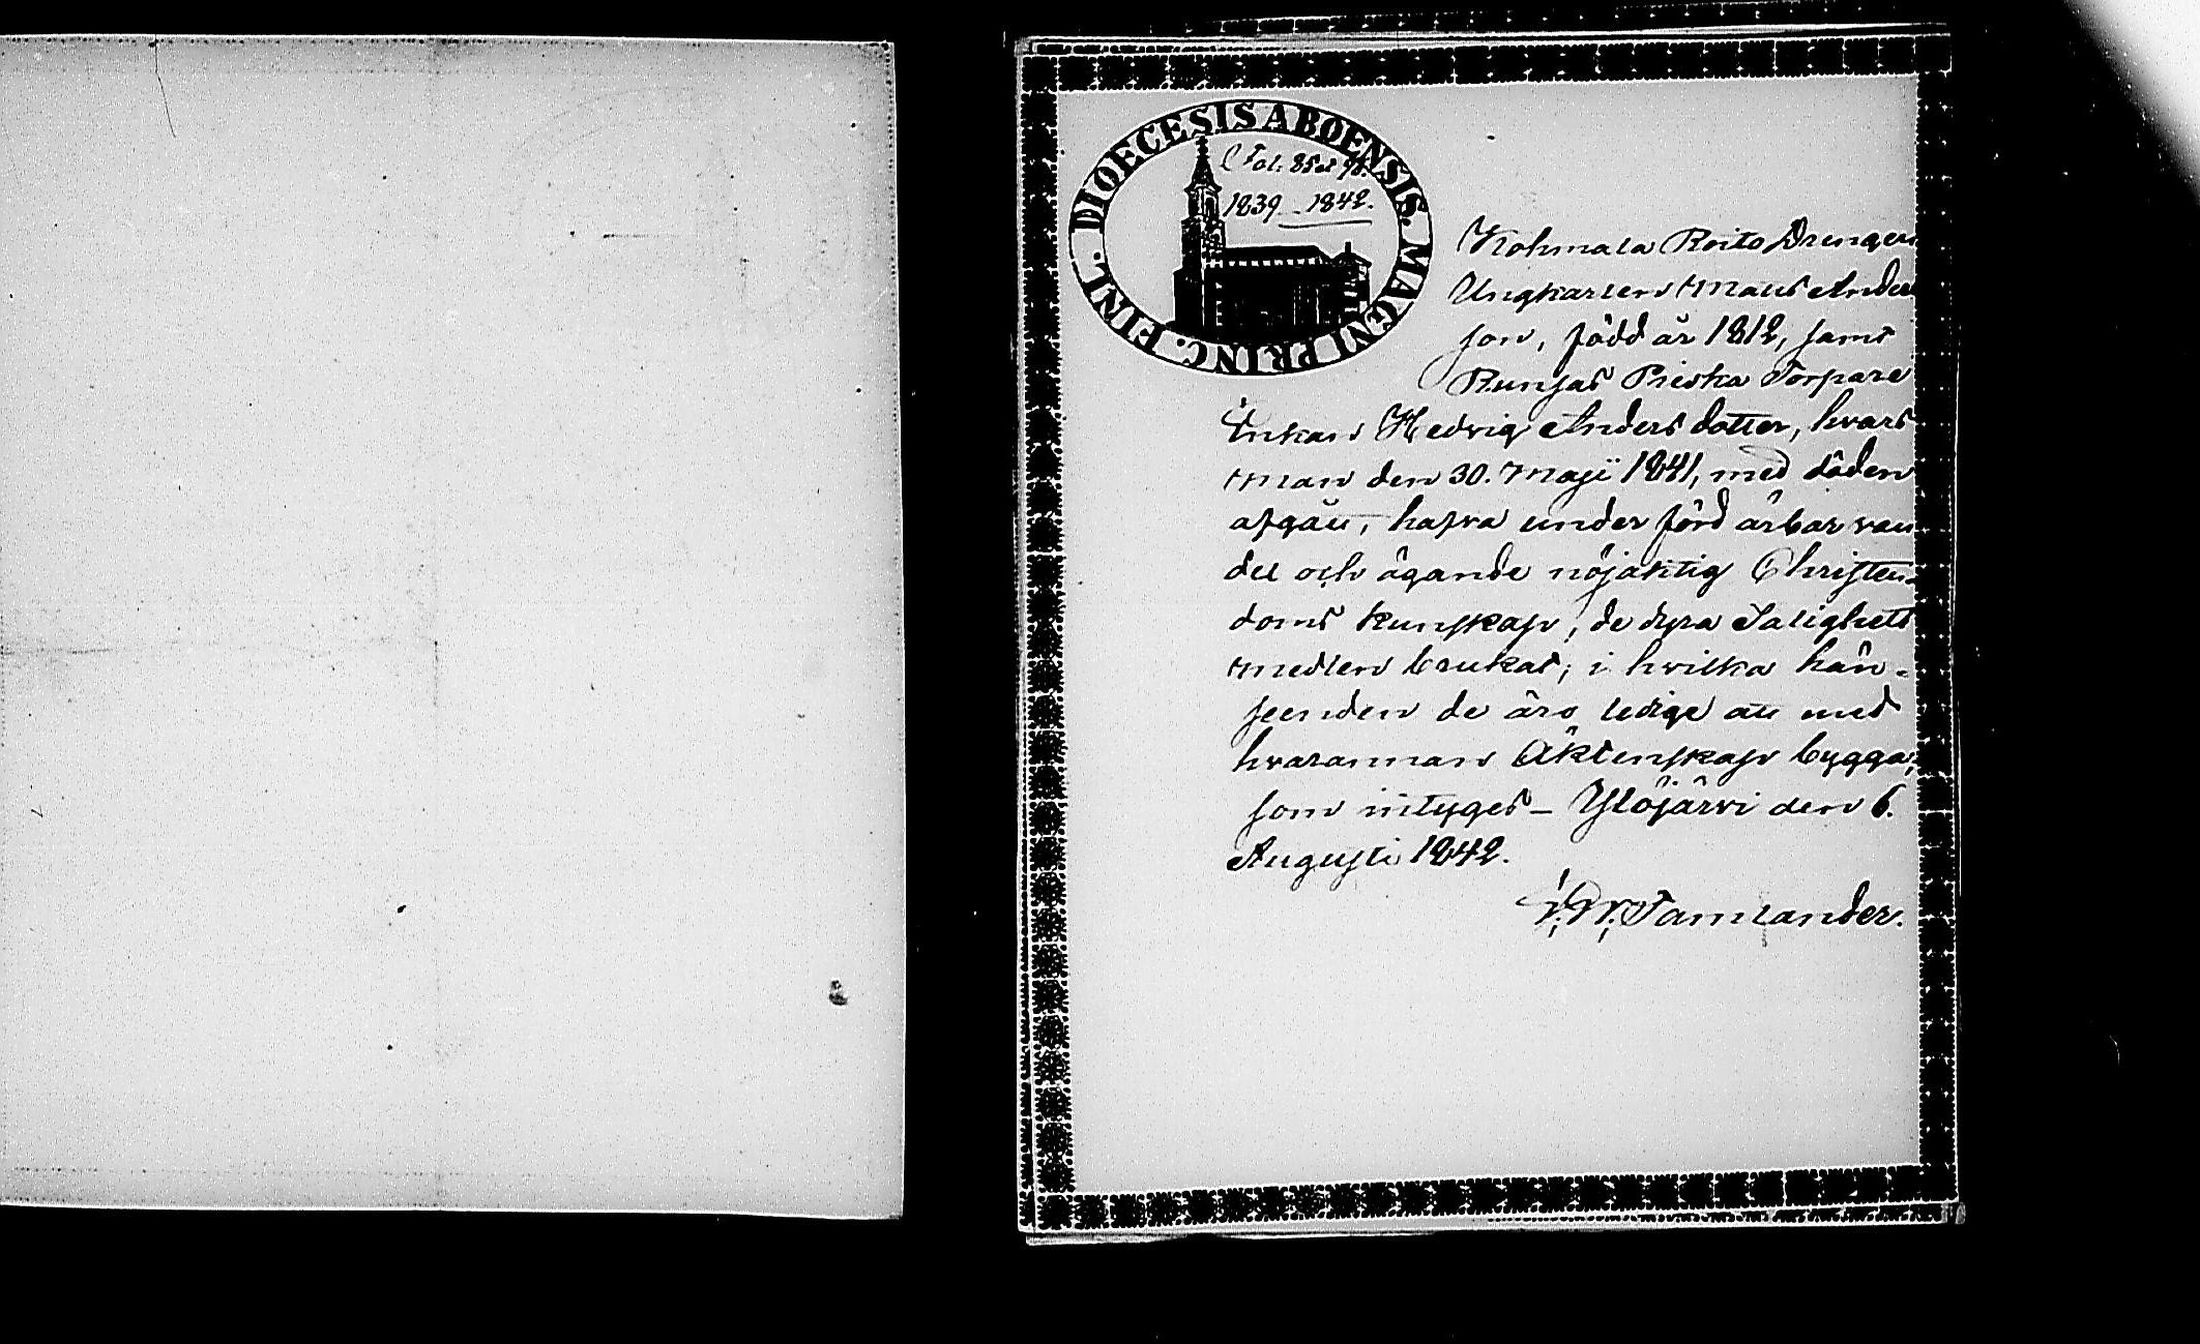 DIOECESIS ABOENSIS. MAGNI PRINC. FINL.
Fol. 85 et 98.
1839 – 1842.
Kohmala Roito Drengen
Ungkarlen Mats Anders
son, född år 1812, samt
Runsas Priska Torpare
Enkan Hedvig Anders dotter, hvars
man den 30. Maji 1841, med döden
afgått, hafva under förd ärbar van
del och ägande nöjaktig Christen-
doms kunskap, de dyra Salighets
medlen brukat; i hvilka hän-
seenden de äro ledige att med
hvarannan Äktenskap bygga;
som intyges – Ylöjärvi den 6.
Augusti 1842.
Tamlander.